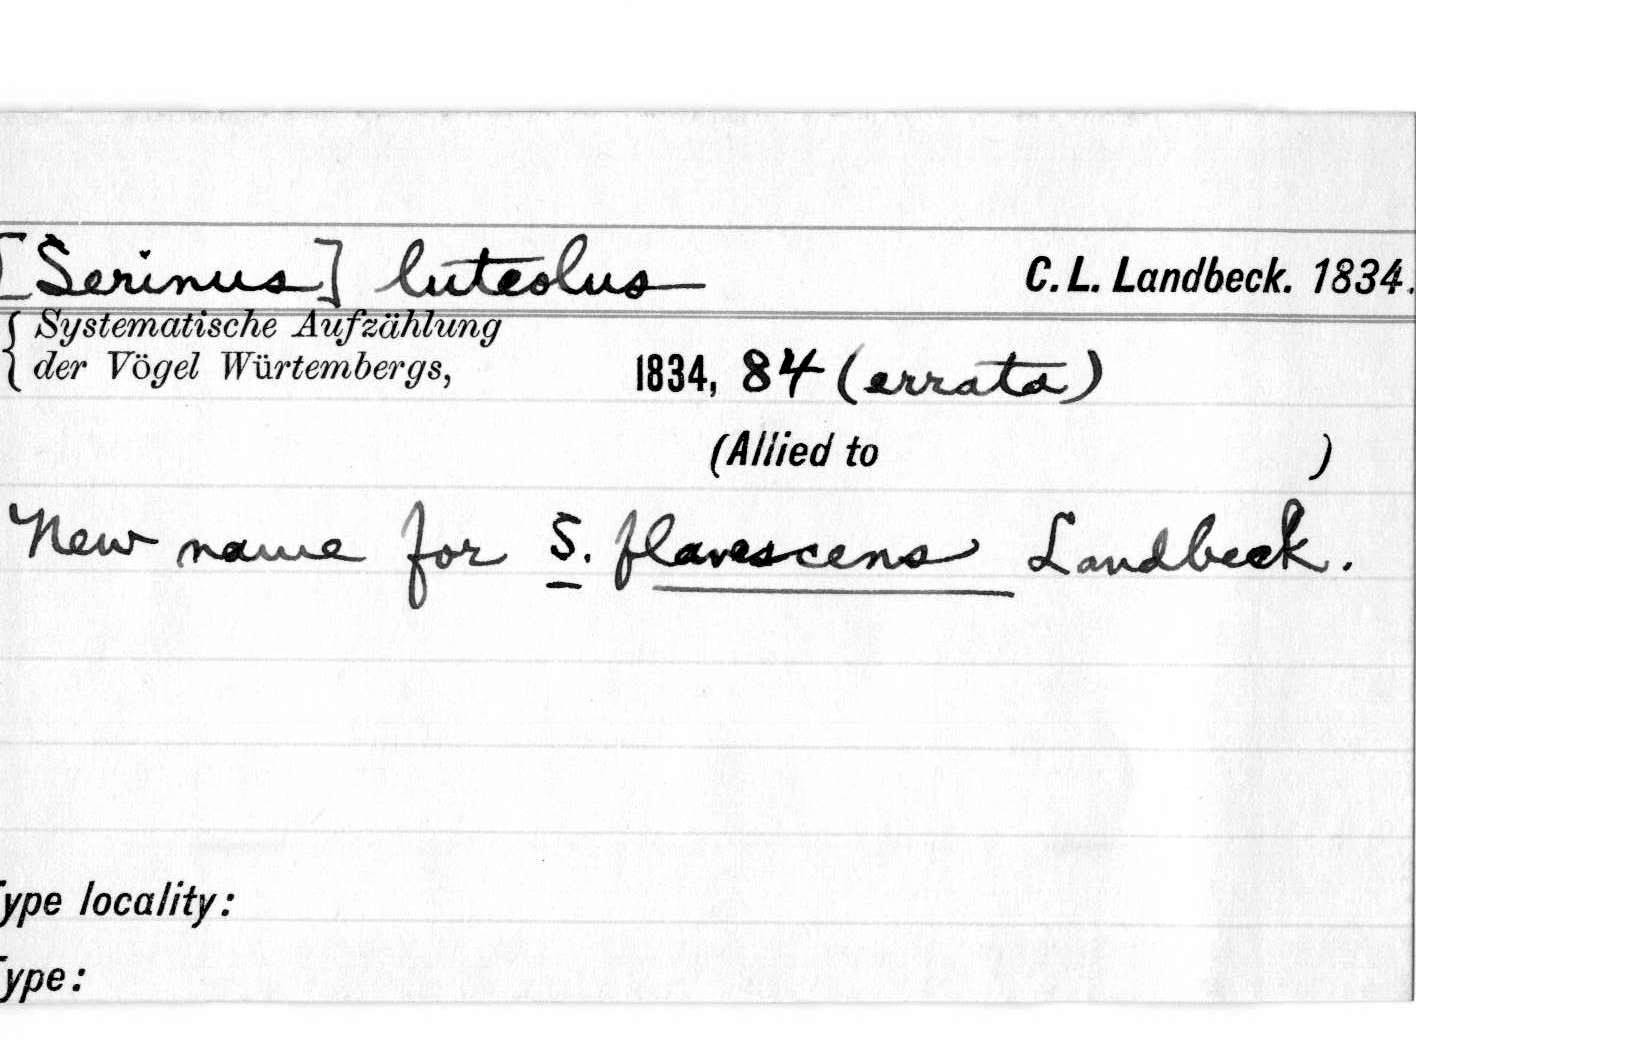 [Serinus] luteolus C. L. Landbeck. 1834.
Systematische Aufzählung
der Vögel Würtembergs, 1834, 84 (errata)
(Allied to )
New name for S. flavescens Landbeck.
Type locality:
Type: